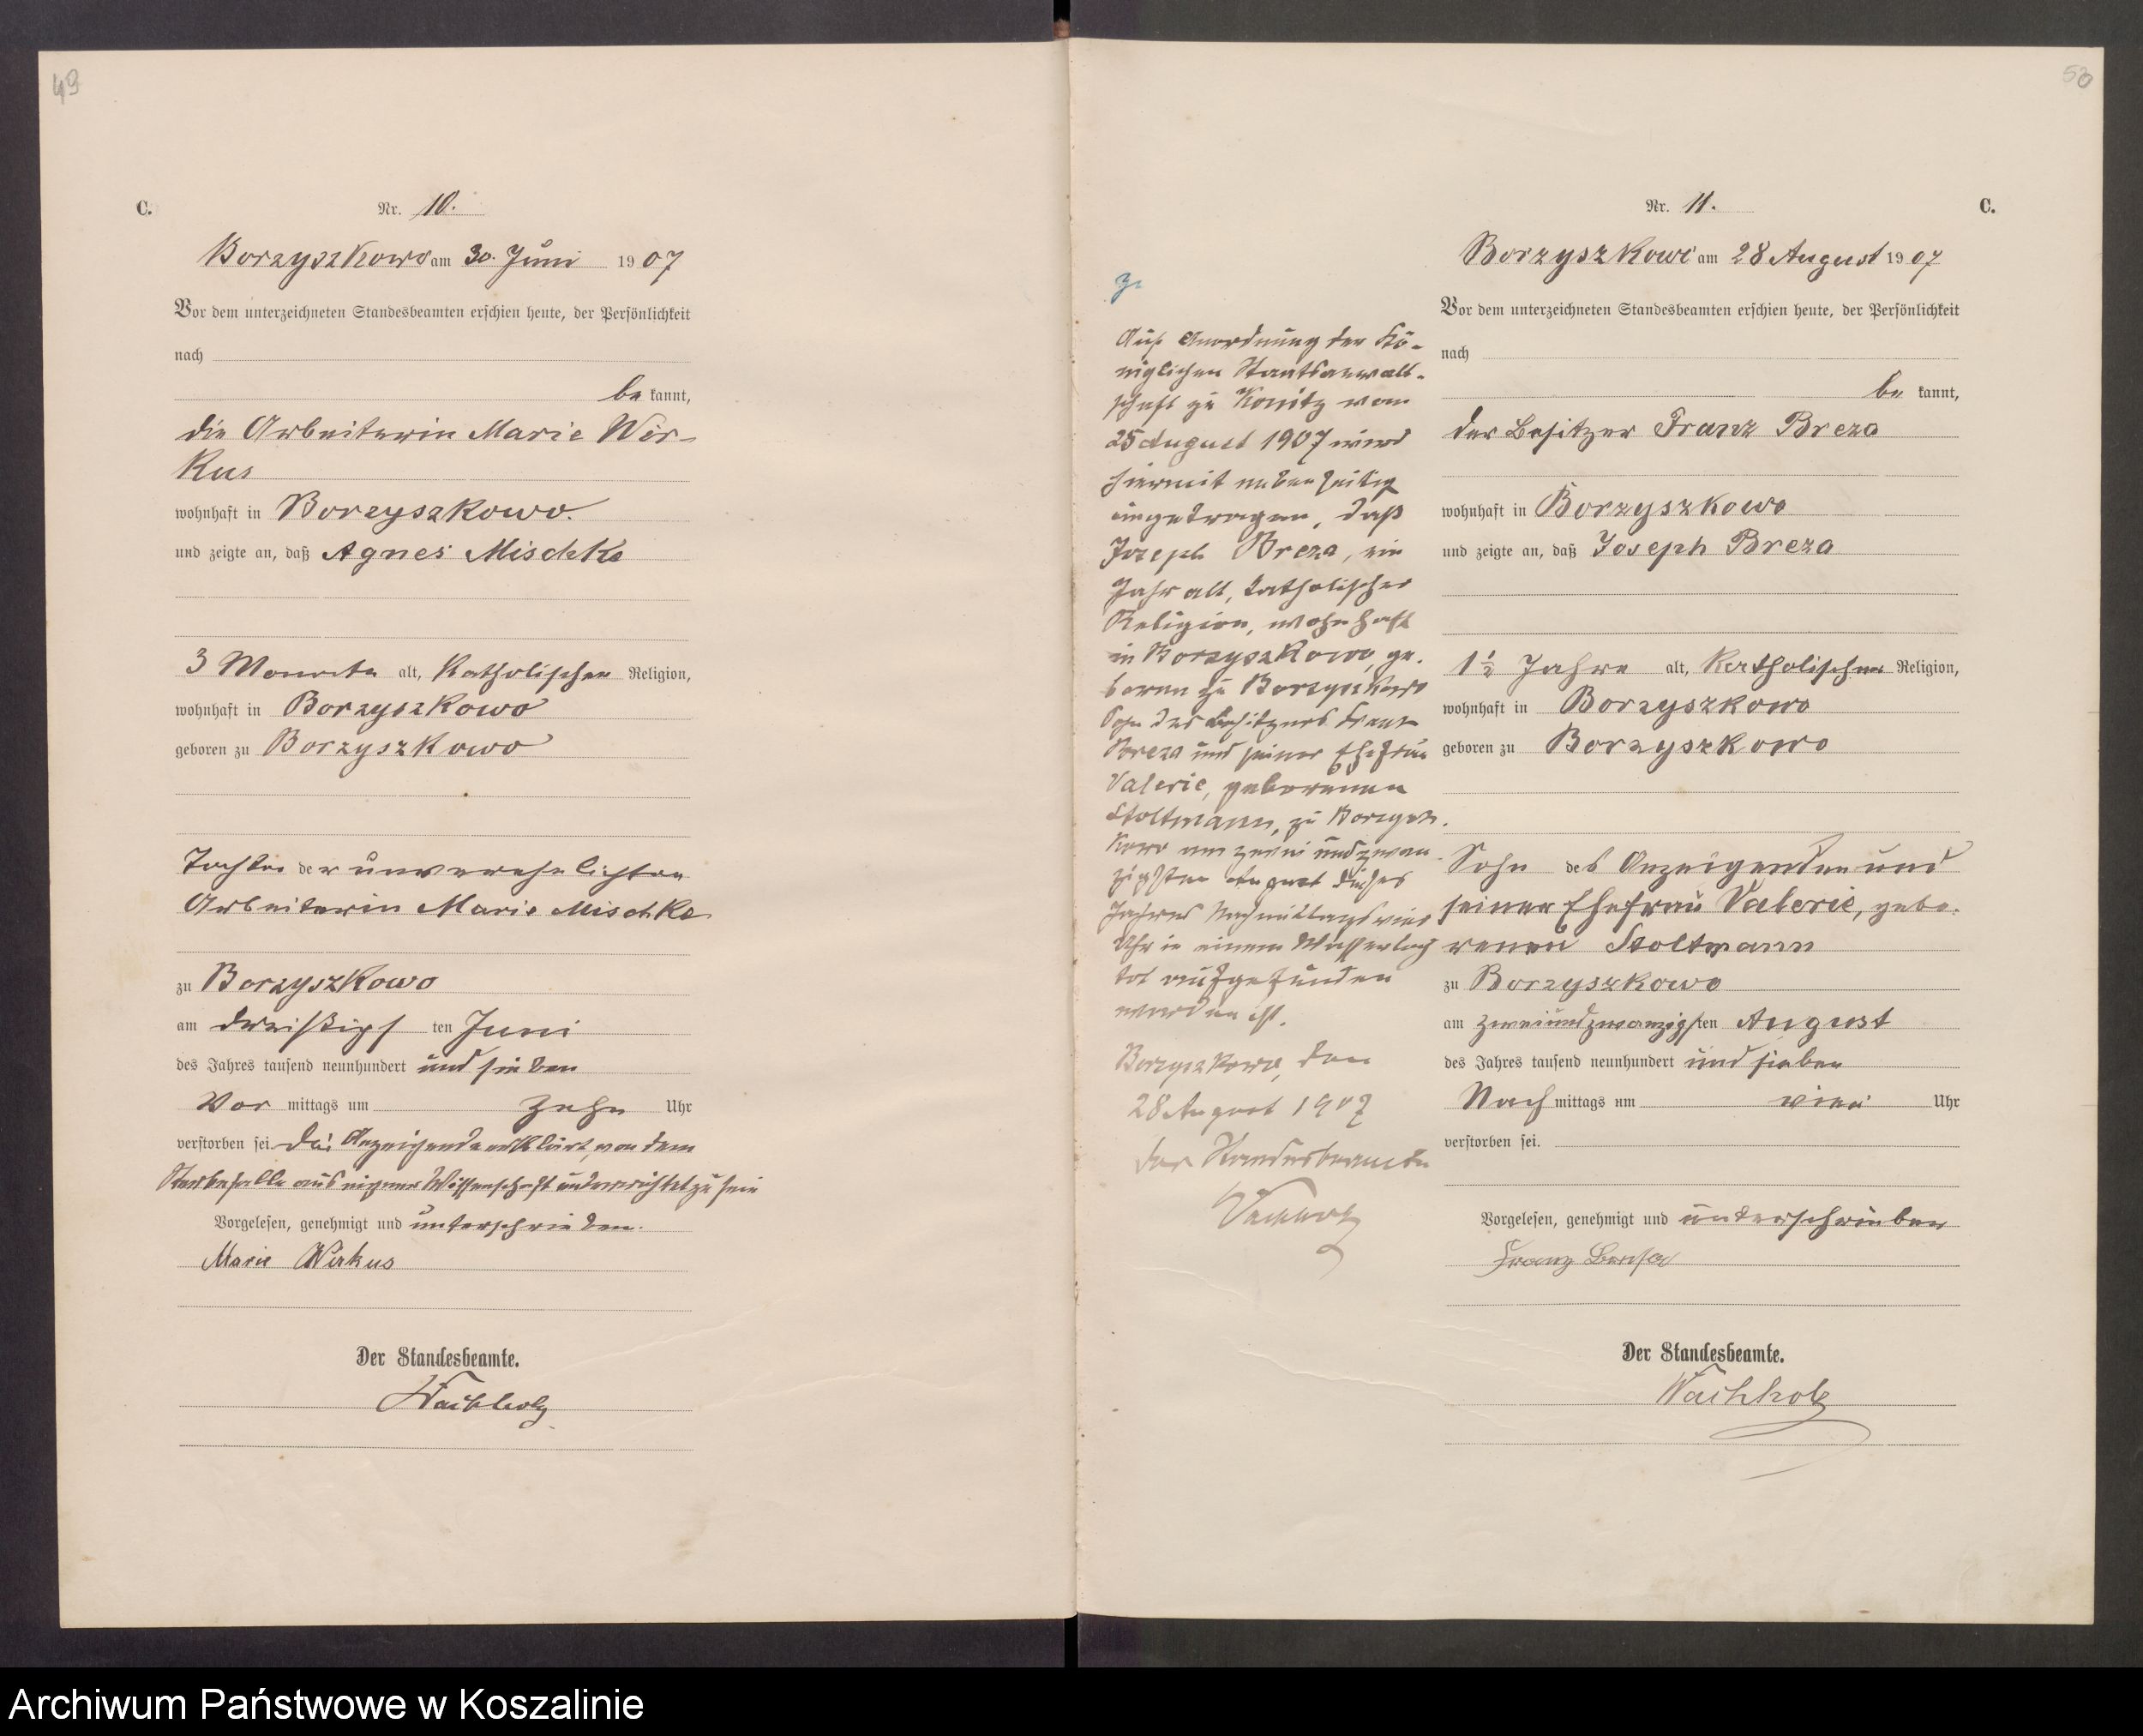 49
C.
Nr. 10.
Borzyszkowo am 30. Juni 1907
Vor dem unterzeichneten Standesbeamten erschien heute, der Persönlichkeit
nach
be kannt,
die Arbeiterin Marie Wir-
kus
wohnhaft in Borzyszkowo.
und zeigte an, daß Agnes Mischke
3 Monate alt, katholischer Religion,
wohnhaft in Borzyszkowo
geboren zu Borzyszkowo
Tochter der unverehelichten
Arbeiterin Marie Mischke
zu Borzyszkowo
am dreißigs ten Juni
des Jahres tausend neunhundert und sieben
Vor mittags um zehn Uhr
verstorben sei. Die Anzeigende erklärt, von dem
Sterbefalle aus eigener Wissenschaft unterrichtet zu sein
Vorgelesen, genehmigt und unterschrieben.
Marie Wirkus
Der Standesbeamte.
Wachholz
50
Nr. 11.
C.
Borzyszkowo am 28 August 1907
Vor dem unterzeichneten Standesbeamten erschien heute, der Persönlichkeit
nach
be kannt,
der Besitzer Franz Breza
wohnhaft in Borzyszkowo
und zeigte an, daß Joseph Breza
1½ Jahre alt, katholischer Religion,
wohnhaft in Borzyszkowo
geboren zu Borzyszkowo
Sohn des Anzeigenden und
seiner Ehefrau Valerie, gebo-
renen Stoltmann
zu Borzyszkowo
am zweiundzwanzigsten August
des Jahres tausend neunhundert und sieben
Nach mittags um vier Uhr
verstorben sei.
Vorgelesen, genehmigt und unterschrieben
Franz
Der Standesbeamte.
Wachholz
Auf Anordnung der Kö-
niglichen Staatsanwalt-
schaft zu Konitz vom
25 August 1907 wird
hiermit nebenzeitig
eingetragen, daß
Joseph Breza, ein
Jahr alt, katholischer
Religion, wohnhaft
in Borzyszkowo, ge-
boren zu Borzyszkowo
Sohn des Besitzers Franz
Breza und seiner Ehefrau
Valerie, geborenen
Stoltmann, zu Borzysz-
kowo am zwei und zwan-
zigsten August dieses
Jahres Nachmittags vier
Uhr in einem Wasserloch
tot aufgefunden
worden ist.
Borzyszkowo, den
28 August 1907
Der Standesbeamte
Wachholz
Archiwum Państwowe w Koszalinie